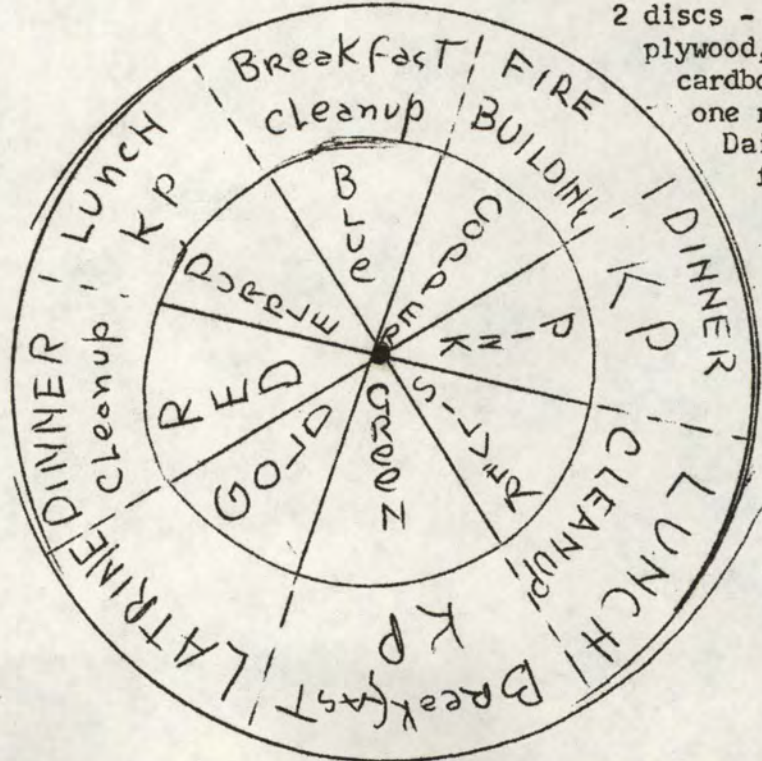 2 discs -
plywood,
cardbo
one r
Dai
f
BReaKfasT
Cleanup
FIRE
BUILDING
DINNER
KP
LUNCH
CLEANUP
BReakfAST
KP
LATRINE
DINNER
Cleanup
LUNCH
KP
BLue
COPPER
PINK
GReeN
GOLD
RED
PURPLE